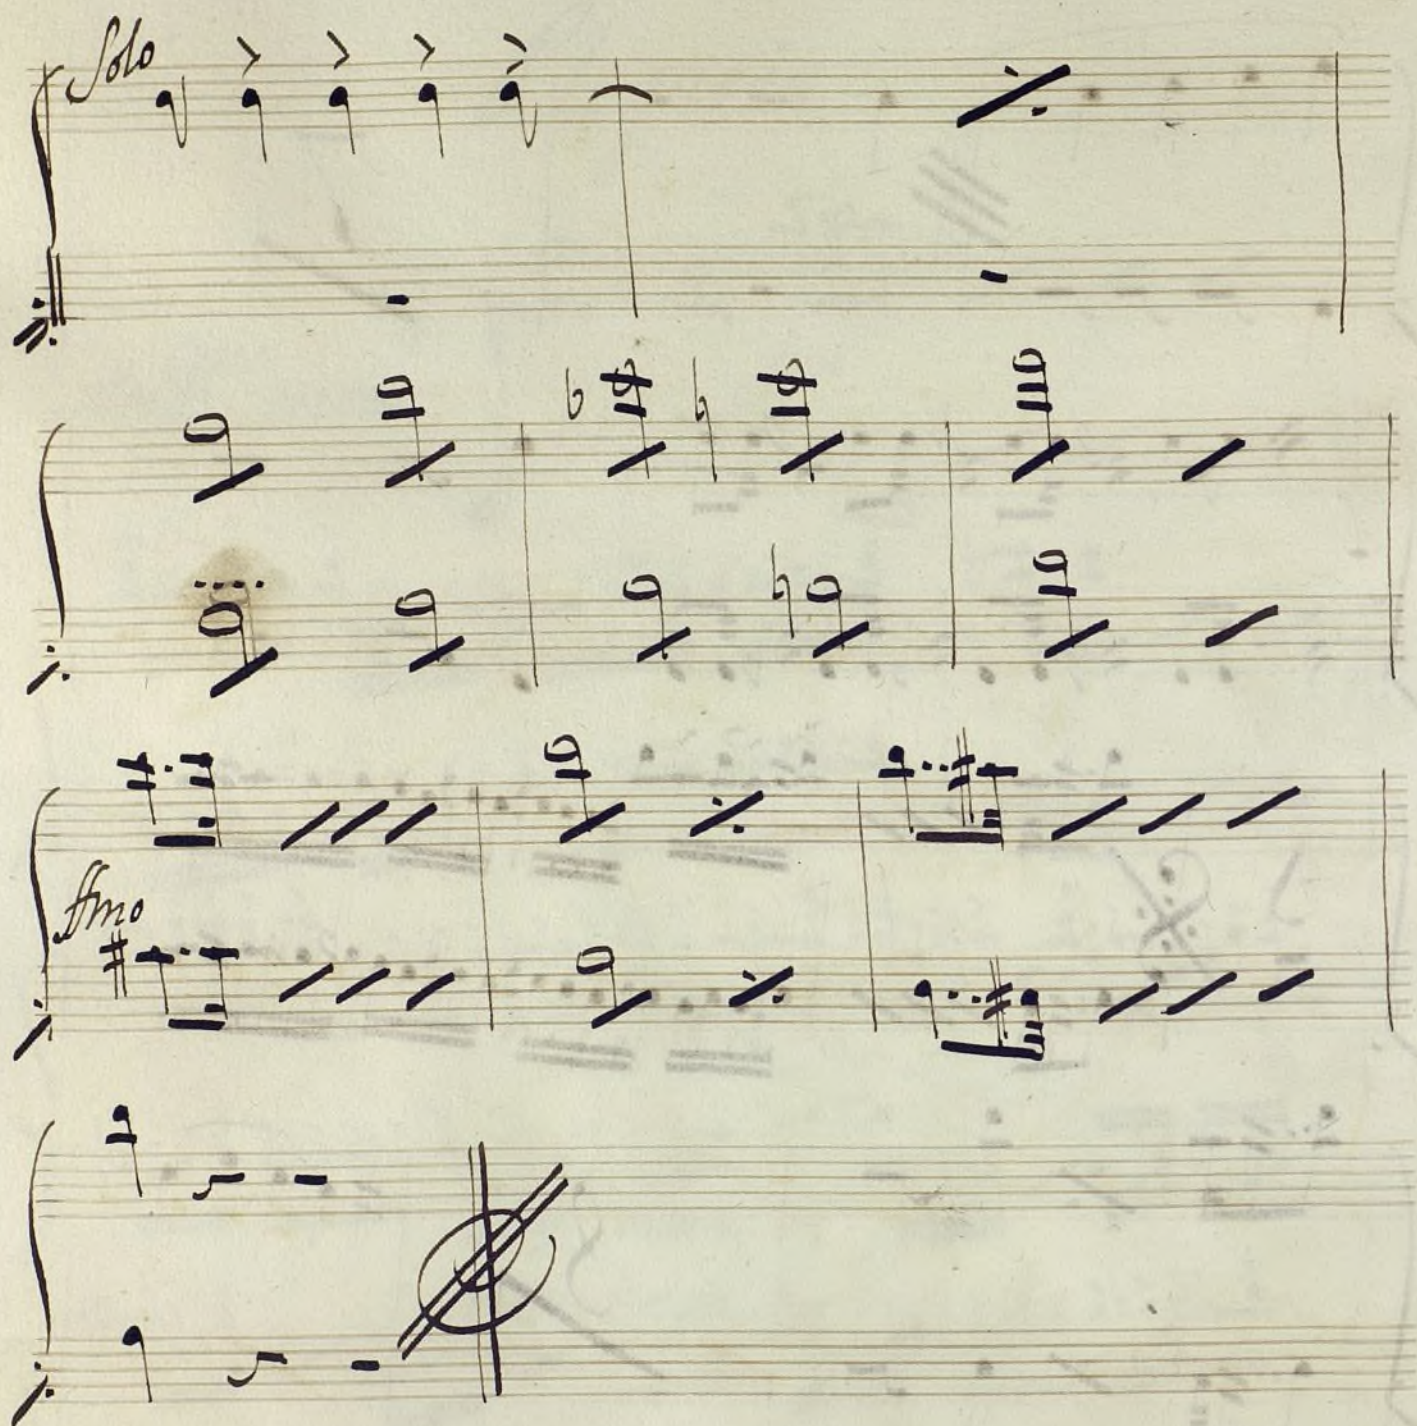 Solo
ffmo